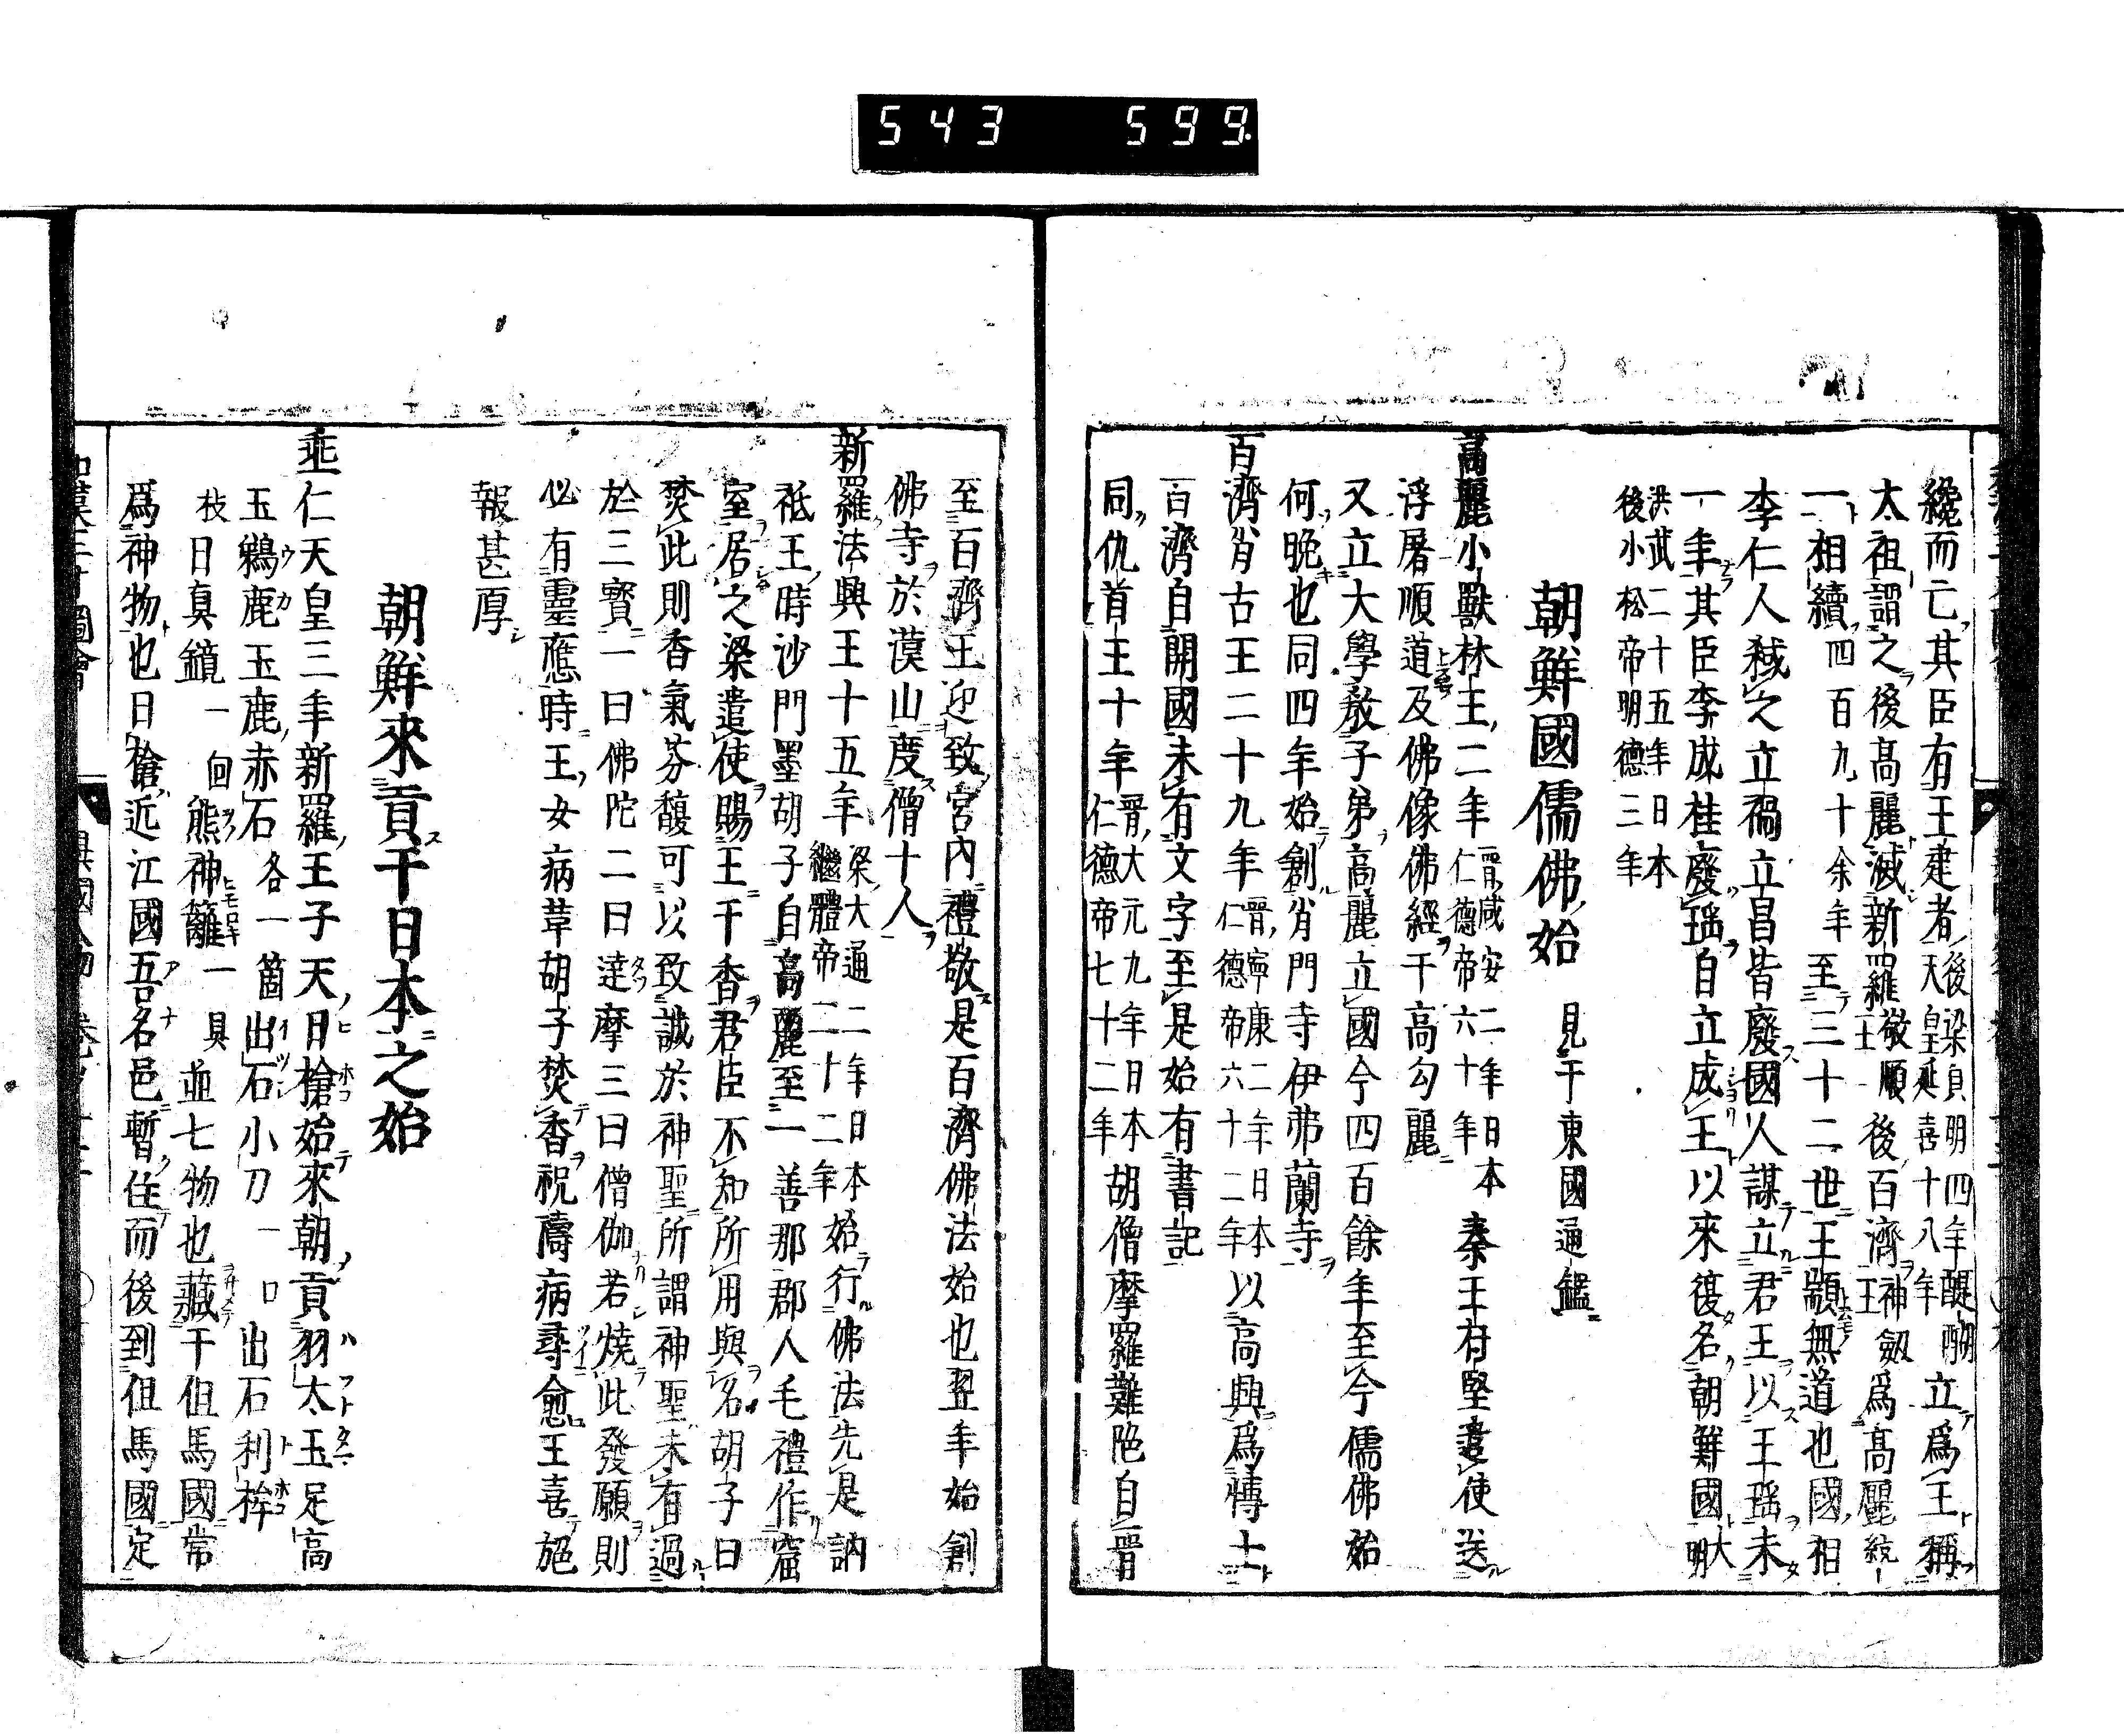 543 599
纔而亡其臣有王建者後梁貞明四年醍醐天皇延喜十八年立爲王稱
太祖謂之後高麗滅新羅敬順王後百濟神劔王爲高麗統
一相續四百九十余年至三十二世王顓無道也國相
李仁人弑之立禑立昌皆廢國人謀立君王以王瑶未
一年其臣李成桂廢瑶自立成王以來復名朝鮮國大明
洪武二十五年日本後小松帝明德三年
朝鮮國儒佛始 見于東國通鑑
高麗小獸林王二年晋咸安二年日本仁德帝六十年秦王苻堅遣使送
浮屠順道及佛像佛經于高勾麗
又立大學教子弟高麗立國今四百餘年至今儒佛始
何晚也同四年始創肖門寺伊弗蘭寺
百濟肖古王二十九年晋寧康二年日本仁德帝六十二年以高興爲博士
百濟自開國未有文字至是始有書記
同仇首王十年晋大元九年日本仁德帝七十二年胡僧摩羅難陁自晋
至百濟王迎致宮內禮敬是百濟佛法始也翌年始創
佛寺於漢山度僧十人
新羅法興王十五年梁大通二年日本繼體帝二十二年始行佛法先是訥
祇王時沙門墨胡子自高麗至一善那郡人毛禮作窟
室居之梁遣使賜王于香君臣不知所用與名胡子曰
焚此則香氣芬馥可以致誠於神聖所謂神聖未有過
於三寳一曰佛陀二曰達摩三曰僧伽若燒此發願則
必有靈應時王女病革胡子焚香祝禱病尋愈王喜施
報甚厚
朝鮮來貢于日本之始
垂仁天皇三年新羅王子天日槍始來朝貢羽太玉足高
玉鵜鹿玉鹿赤石各一箇出石小刀一口出石利桙
枝日真鏡一回熊神籬一具並七物也藏于但馬國常
爲神物也日槍近江國吾名邑暫住而後到但馬國定